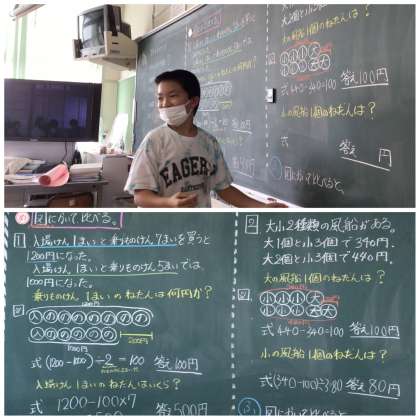 EAGER
大2個と小3個
大の風船1個のねだんは？
小小小大
小小小大大
式 440-340=100 答え100円
小の風船1個のねだんは？
式
答え 円
図にかいて比べると、
め 図にかいて比べる。
1 入場けん1まいと乗りものけん7まいを買うと
1200円になった。
入場けん1まいと乗りものけん5まいでは、
1000円になった。
乗りものけん1まいのねだんは何円か？
図
入ののののののの
入ののののの
200円
1000円
式 (1200-1000)÷2=100 答え100円
入場けん1まいのねだんはいくら？
式 1200-100×7
500円
2 大小2種類の風船がある。
大1個と小3個で340円。
大2個と小3個で440円。
大の風船1個のねだんは？
図
小小小大
小小小大大
式 440-340=100 答え100円
小の風船1個のねだんは？
式(340-100)÷3=80 答え80円
図にかいて比べると